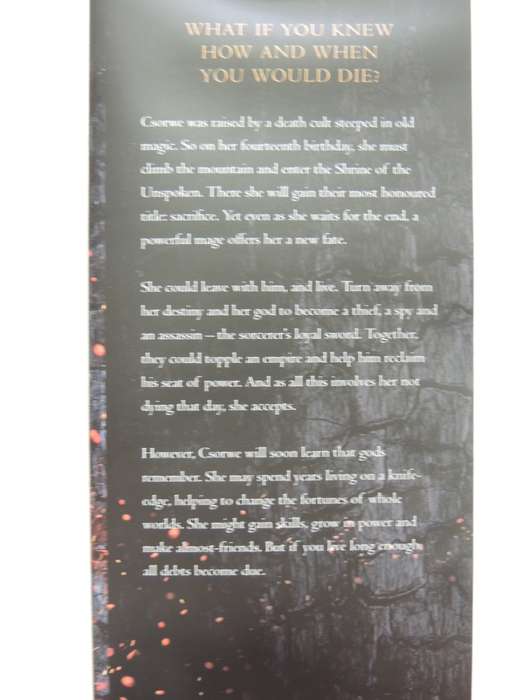 WHAT IF YOU KNEW
HOW AND WHEN
YOU WOULD DIE?
Csorwe was raised by a death cult steeped in old
magic. So on her fourteenth birthday, she must
climb the mountain and enter the Shrine of the
Unspoken. There she will gain their most honoured
title: sacrifice. Yet even as she waits for the end, a
powerful mage offers her a new fate.
She could leave with him, and live. Turn away from
her destiny and her god to become a thief, a spy and
an assassin – the sorcerer's loyal sword. Together,
they could topple an empire and help him reclaim
his seat of power. And as all this involves her not
dying that day, she accepts.
However, Csorwe will soon learn that gods
remember. She may spend years living on a knife-
edge, helping to change the fortunes of whole
worlds. She might gain skills, grow in power and
make almost-friends. But if you live long enough,
all debts become due.